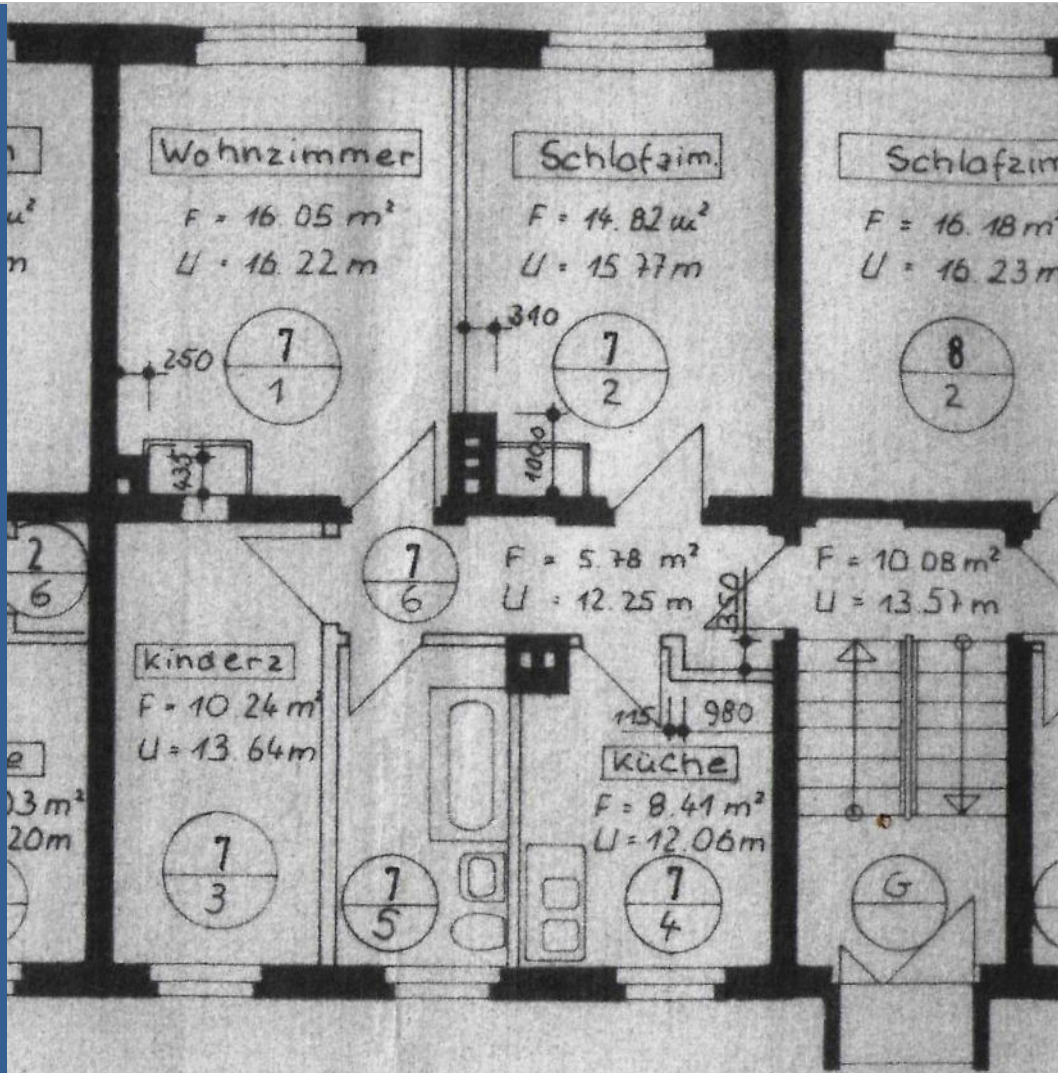 Wohnzimmer
F = 16.05 m²
U = 16.22 m
250
7
1
435
Schlafzim.
F = 14.82 m²
U = 15.77 m
310
7
2
1000
Schlafzim
F = 16.18 m²
U = 16.23 m
8
2
2
6
7
6
F = 5.78 m²
U = 12.25 m
350
F = 10.08 m²
U = 13.57 m
kinderz
F = 10.24 m²
U = 13.64 m
7
3
e
03 m²
20 m
7
5
115
980
Küche
F = 8.41 m²
U = 12.06 m
7
4
G